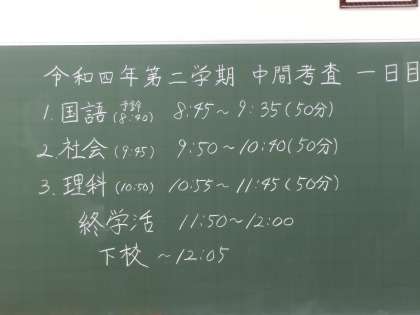 令和四年第二学期 中間考査 一日目
1. 国語 予鈴(8:40) 8:45~9:35(50分)
2. 社会(9:45) 9:50~10:40(50分)
3. 理科(10:50) 10:55~11:45(50分)
終学活 11:50~12:00
下校 ~12:05